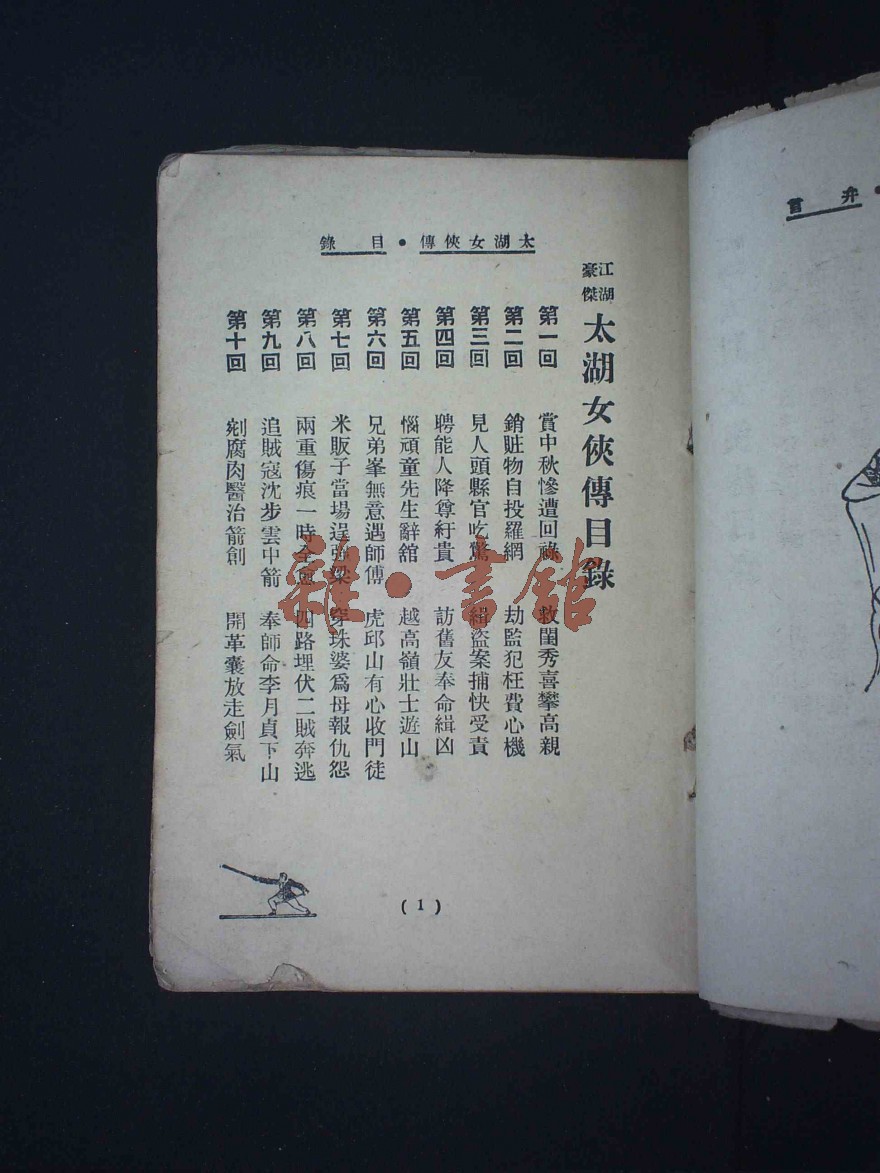 太湖女俠傳・目錄
江湖豪傑
太湖女俠傳目錄
第一回 賞中秋慘遭回祿 救閨秀喜攀高親
第二回 銷贓物自投羅網 劫監犯枉費心機
第三回 見人頭縣官吃驚 緝盜案捕快受責
第四回 聘能人降尊紆貴 訪舊友奉命緝凶
第五回 惱頑童先生辭舘 越高嶺壯士遊山
第六回 兄弟峯無意遇師傅 虎邱山有心收門徒
第七回 米販子當場逞強梁 穿珠婆爲母報仇怨
第八回 兩重傷痕一時全愈 四路埋伏二賊奔逃
第九回 追賊寇沈步雲中箭 奉師命李月貞下山
第十回 剜腐肉醫治箭創 開革囊放走劍氣
(1)
弁言
雜・書舘